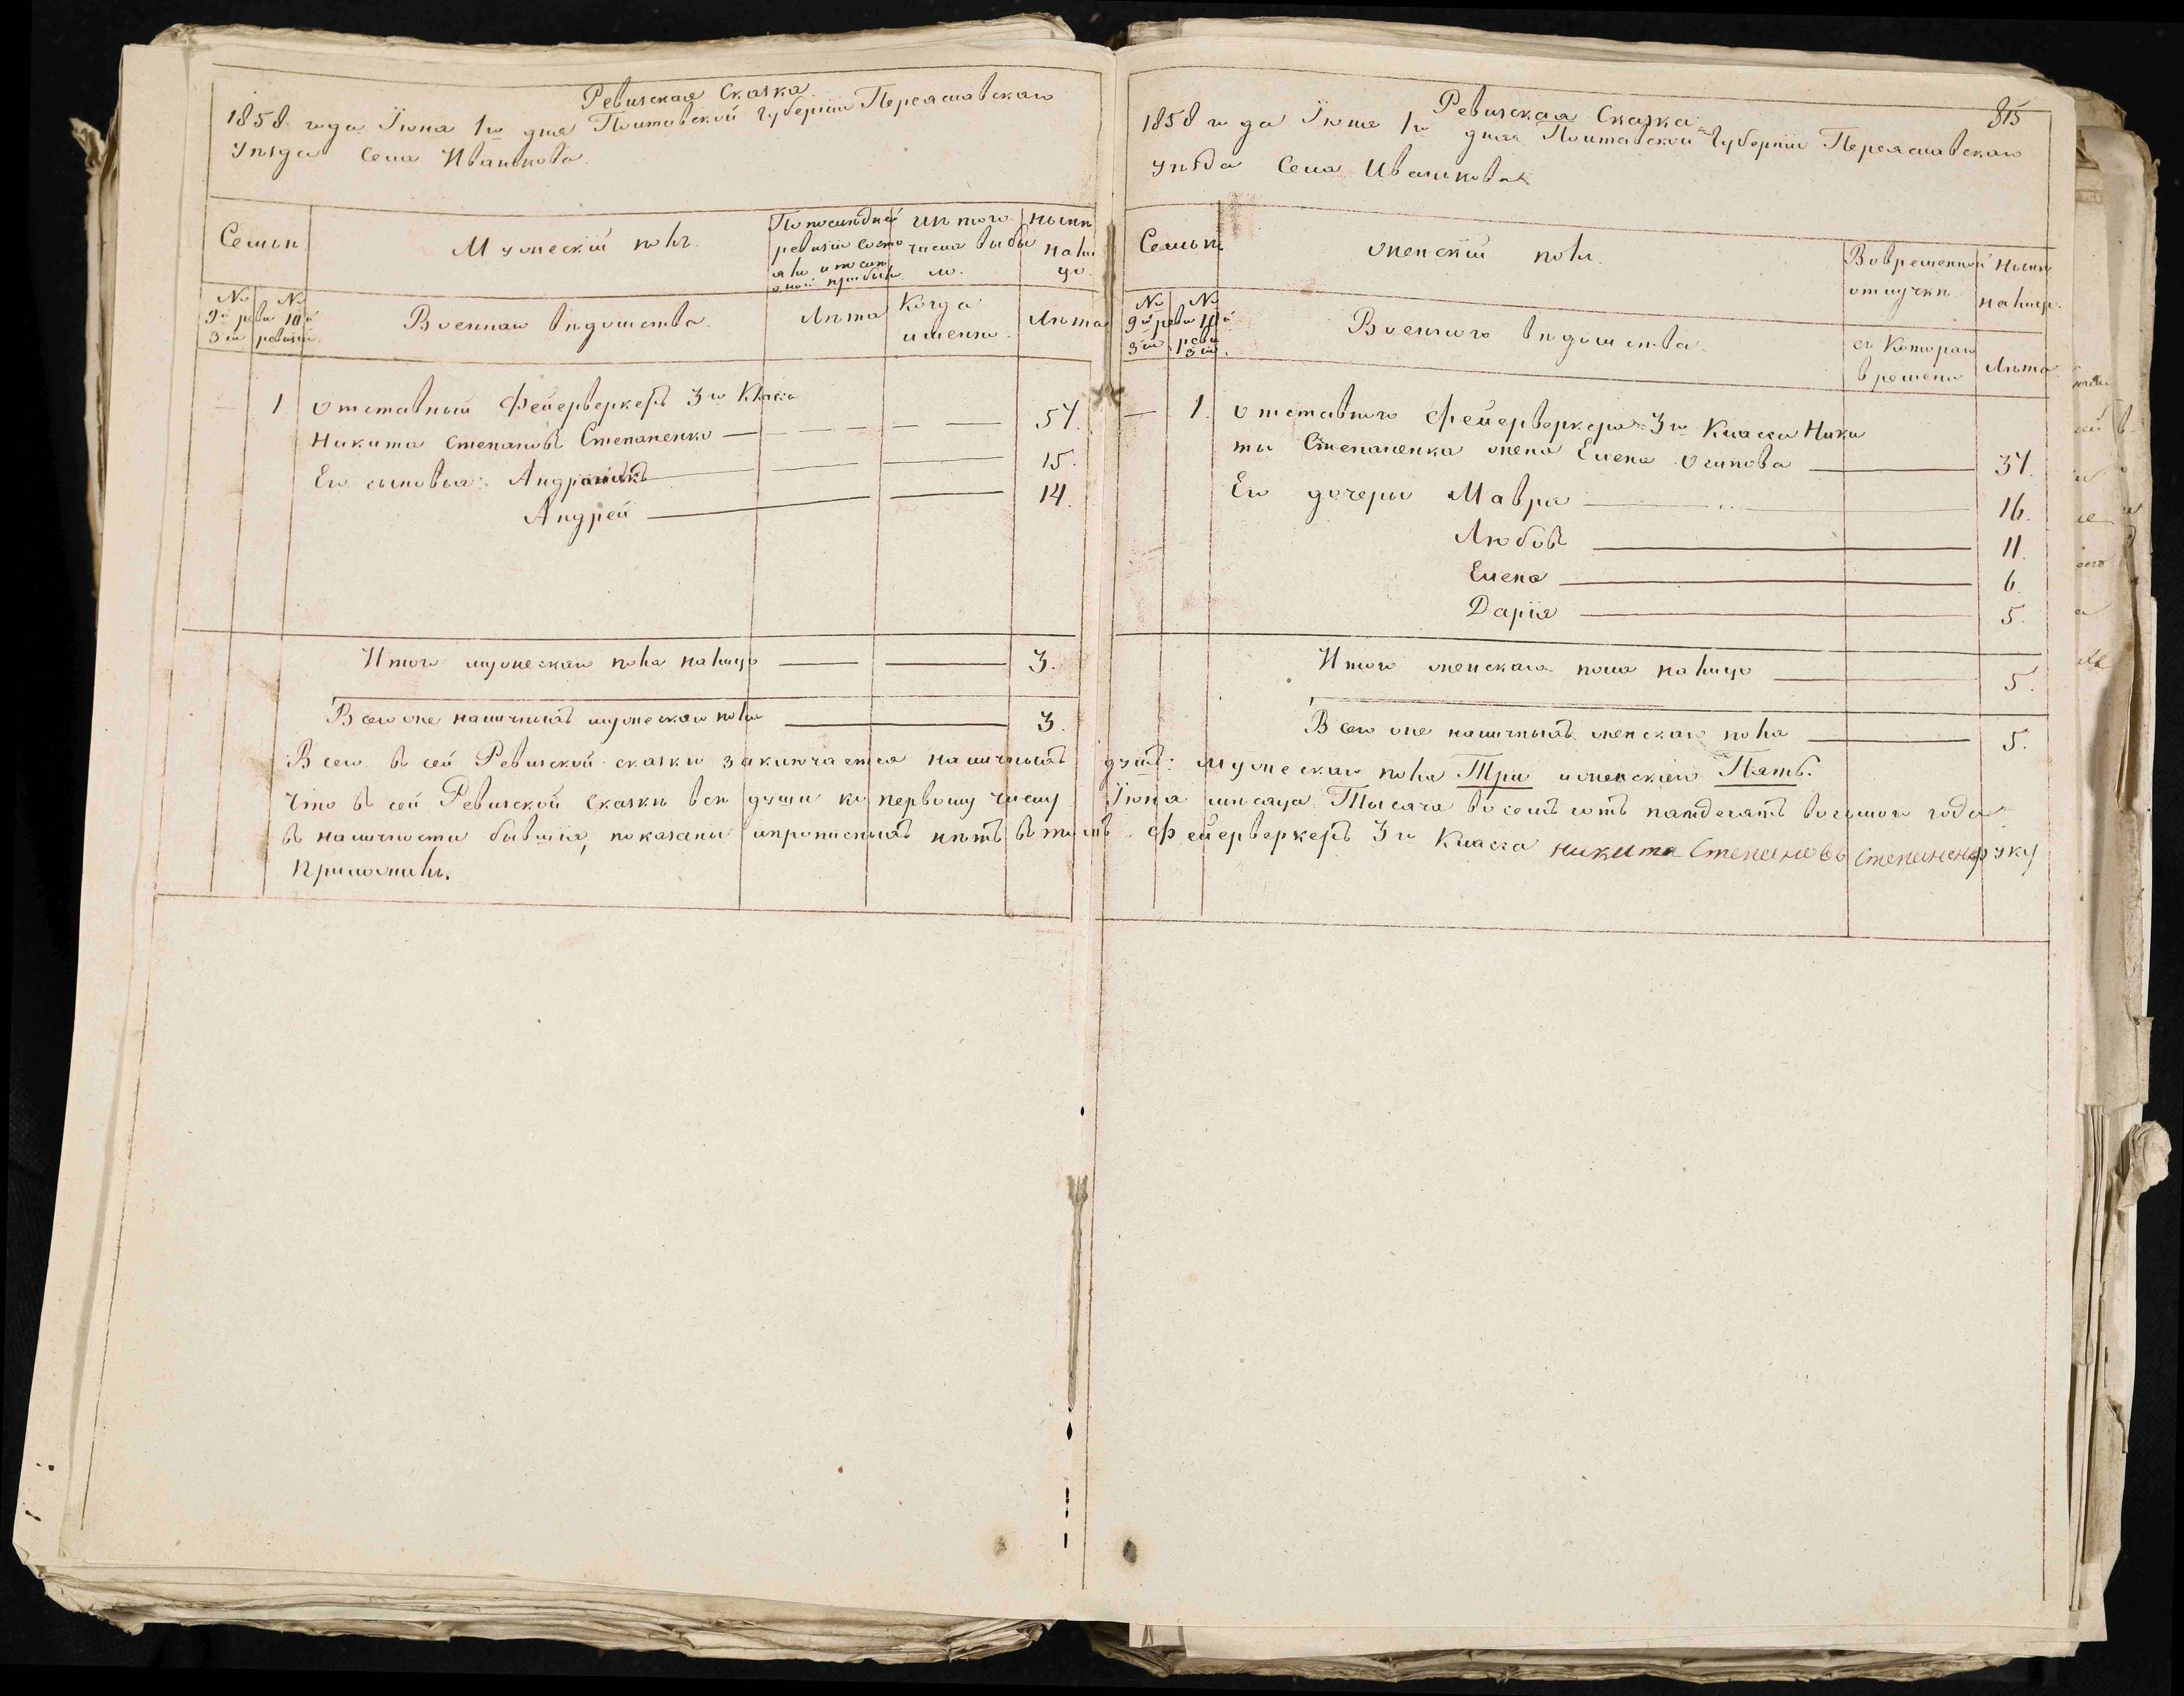 Ревизская Сказка
1858 года Іюня 1го дня Полтавской Губерніи Переяславскаго
уѣзда Села Иванкова
Семьи
Мужескій полъ.
По послѣдней
ревизіи состо
яло и послѣ
оной прибыло
Изъ того
числа выбы
ло.
Нынѣ
на ли
цо.
№ 9й реви
зіи
№ 10й
ревизіи.
Военнаго вѣдомства.
Лѣта
Когда
именно.
Лѣта
1 Отставный Фейерверкеръ 3го Класса
Никита Степановъ Степаненко 57.
Его сыновья: 15.
Андрей 14.
Итого мужескаго пола на лицо 3.
Всего же наличныхъ мужескаго пола 3.
815
Ревизская Сказка
1858 года Іюня 1го дня Полтавской Губерніи Переяславскаго
уѣзда Села Иванкова
Семьи
женскій полъ.
Во временной
отлучкѣ.
Нынѣ
на лицо.
№
9й реви
зіи
№
10й
реви
зіи.
Военнаго вѣдомства.
съ Котораго
времени
Лѣта
1. Отставного Фейерверкера 3го Класса Ники
ты Степаненка жена Елена Осипова 37.
Его дочери Мавра 16.
Любовь 11.
Елена 6.
Дарія 5.
Итого женскаго пола на лицо 5.
Всего же наличныхъ женскаго пола 5.
Всего въ сей Ревизской сказки заключается наличныхъ душъ: мужескаго пола Три и женскаго Пять.
Что въ сей Ревизской Сказкѣ всѣ души къ первому числу Іюня мѣсяца Тысяча восемъ сотъ пятдесятъ восьмого года
въ наличности бывшія, показаны и прописныхъ нѣтъ въ томъ Фейерверкеръ 3го Класса никита Степановъ Степаненко руку
Приложилъ.